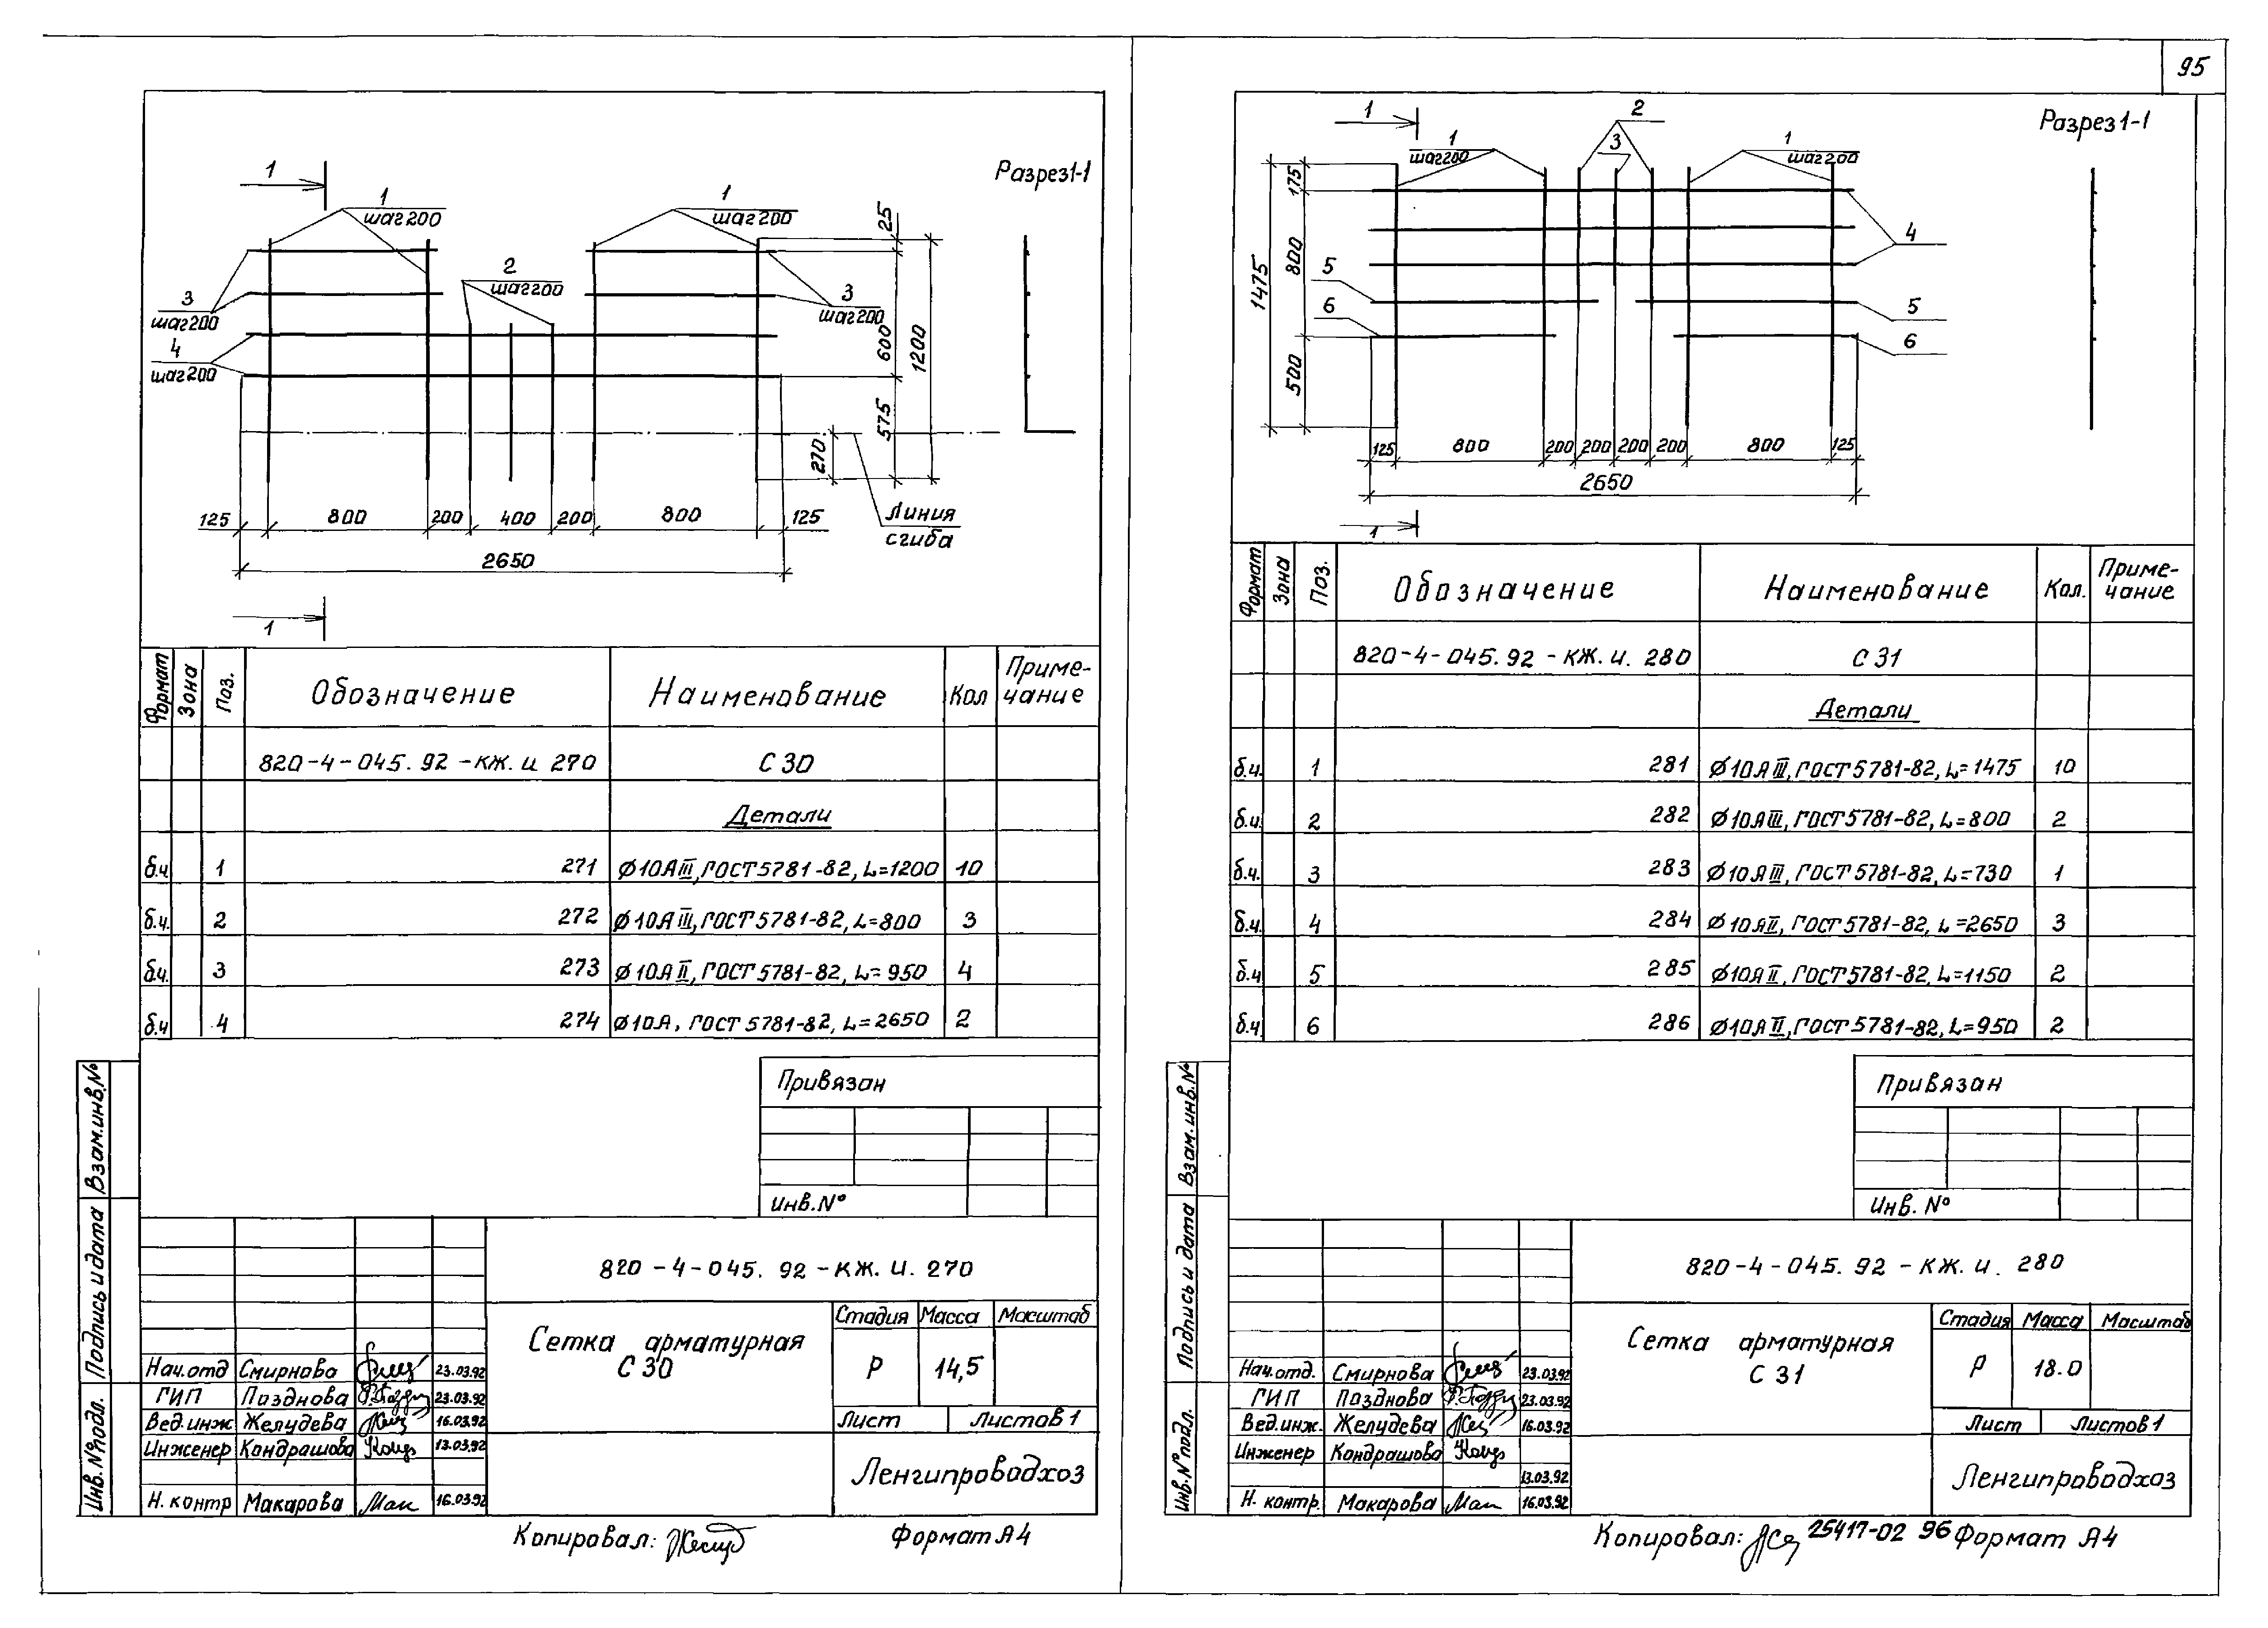 95
1
Разрез1-1
1
шаг200
1
шаг200
2
шаг200
3
шаг200
3
шаг200
4
шаг200
25
600
1200
575
270
Линия
сгиба
125
800
200
400
200
800
125
2650
1
Формат
Зона
Поз.
Обозначение
Наименование
Кол
Приме-
чание
820-4-045.92-КЖ.И 270
С 30
Детали
б.ч 1 271 Ø10АIII, ГОСТ5781-82, L=1200 10
б.ч. 2 272 Ø10АIII, ГОСТ5781-82, L=800 3
б.ч. 3 273 Ø10АII, ГОСТ5781-82, L=950 4
б.ч 4 274 Ø10А, ГОСТ5781-82, L=2650 2
Привязан
Инв.№
Взам.инв.№
Подпись и дата
Инв.№подл.
820-4-045.92-КЖ.И.270
Сетка арматурная
С 30
Стадия Масса Масштаб
Р 14,5
Лист Листов 1
Ленгипроводхоз
Нач.отд Смирнова 23.03.92
ГИП Позднова 23.03.92
Вед.инж Желудева 16.03.92
Инженер Кондрашова 13.03.92
Н.контр Макарова 16.03.92
Копировал:
Формат А4
1
Разрез1-1
1
шаг200
2
3
1
шаг200
4
5
5
6
6
175
800
1475
500
125
800
200
200
200
200
800
125
2650
1
Формат
Зона
Поз.
Обозначение
Наименование
Кол.
Приме-
чание
820-4-045.92-КЖ.И.280
С 31
Детали
б.ч. 1 281 Ø10АIII, ГОСТ5781-82, L=1475 10
б.ч. 2 282 Ø10АIII, ГОСТ5781-82, L=800 2
б.ч. 3 283 Ø10АIII, ГОСТ5781-82, L=730 1
б.ч. 4 284 Ø10АII, ГОСТ5781-82, L=2650 3
б.ч 5 285 Ø10АII, ГОСТ5781-82, L=1150 2
б.ч 6 286 Ø10АII, ГОСТ5781-82, L=950 2
Привязан
Инв.№
Взам.инв.№
Подпись и дата
Инв.№подл.
820-4-045.92-КЖ.И.280
Сетка арматурная
С 31
Стадия Масса Масштаб
Р 18.0
Лист Листов 1
Ленгипроводхоз
Нач.отд. Смирнова 23.03.92
ГИП Позднова 23.03.92
Вед.инж. Желудева 16.03.92
Инженер Кондрашова
13.03.92
Н.контр. Макарова 16.03.92
Копировал:
25417-02 96
Формат А4